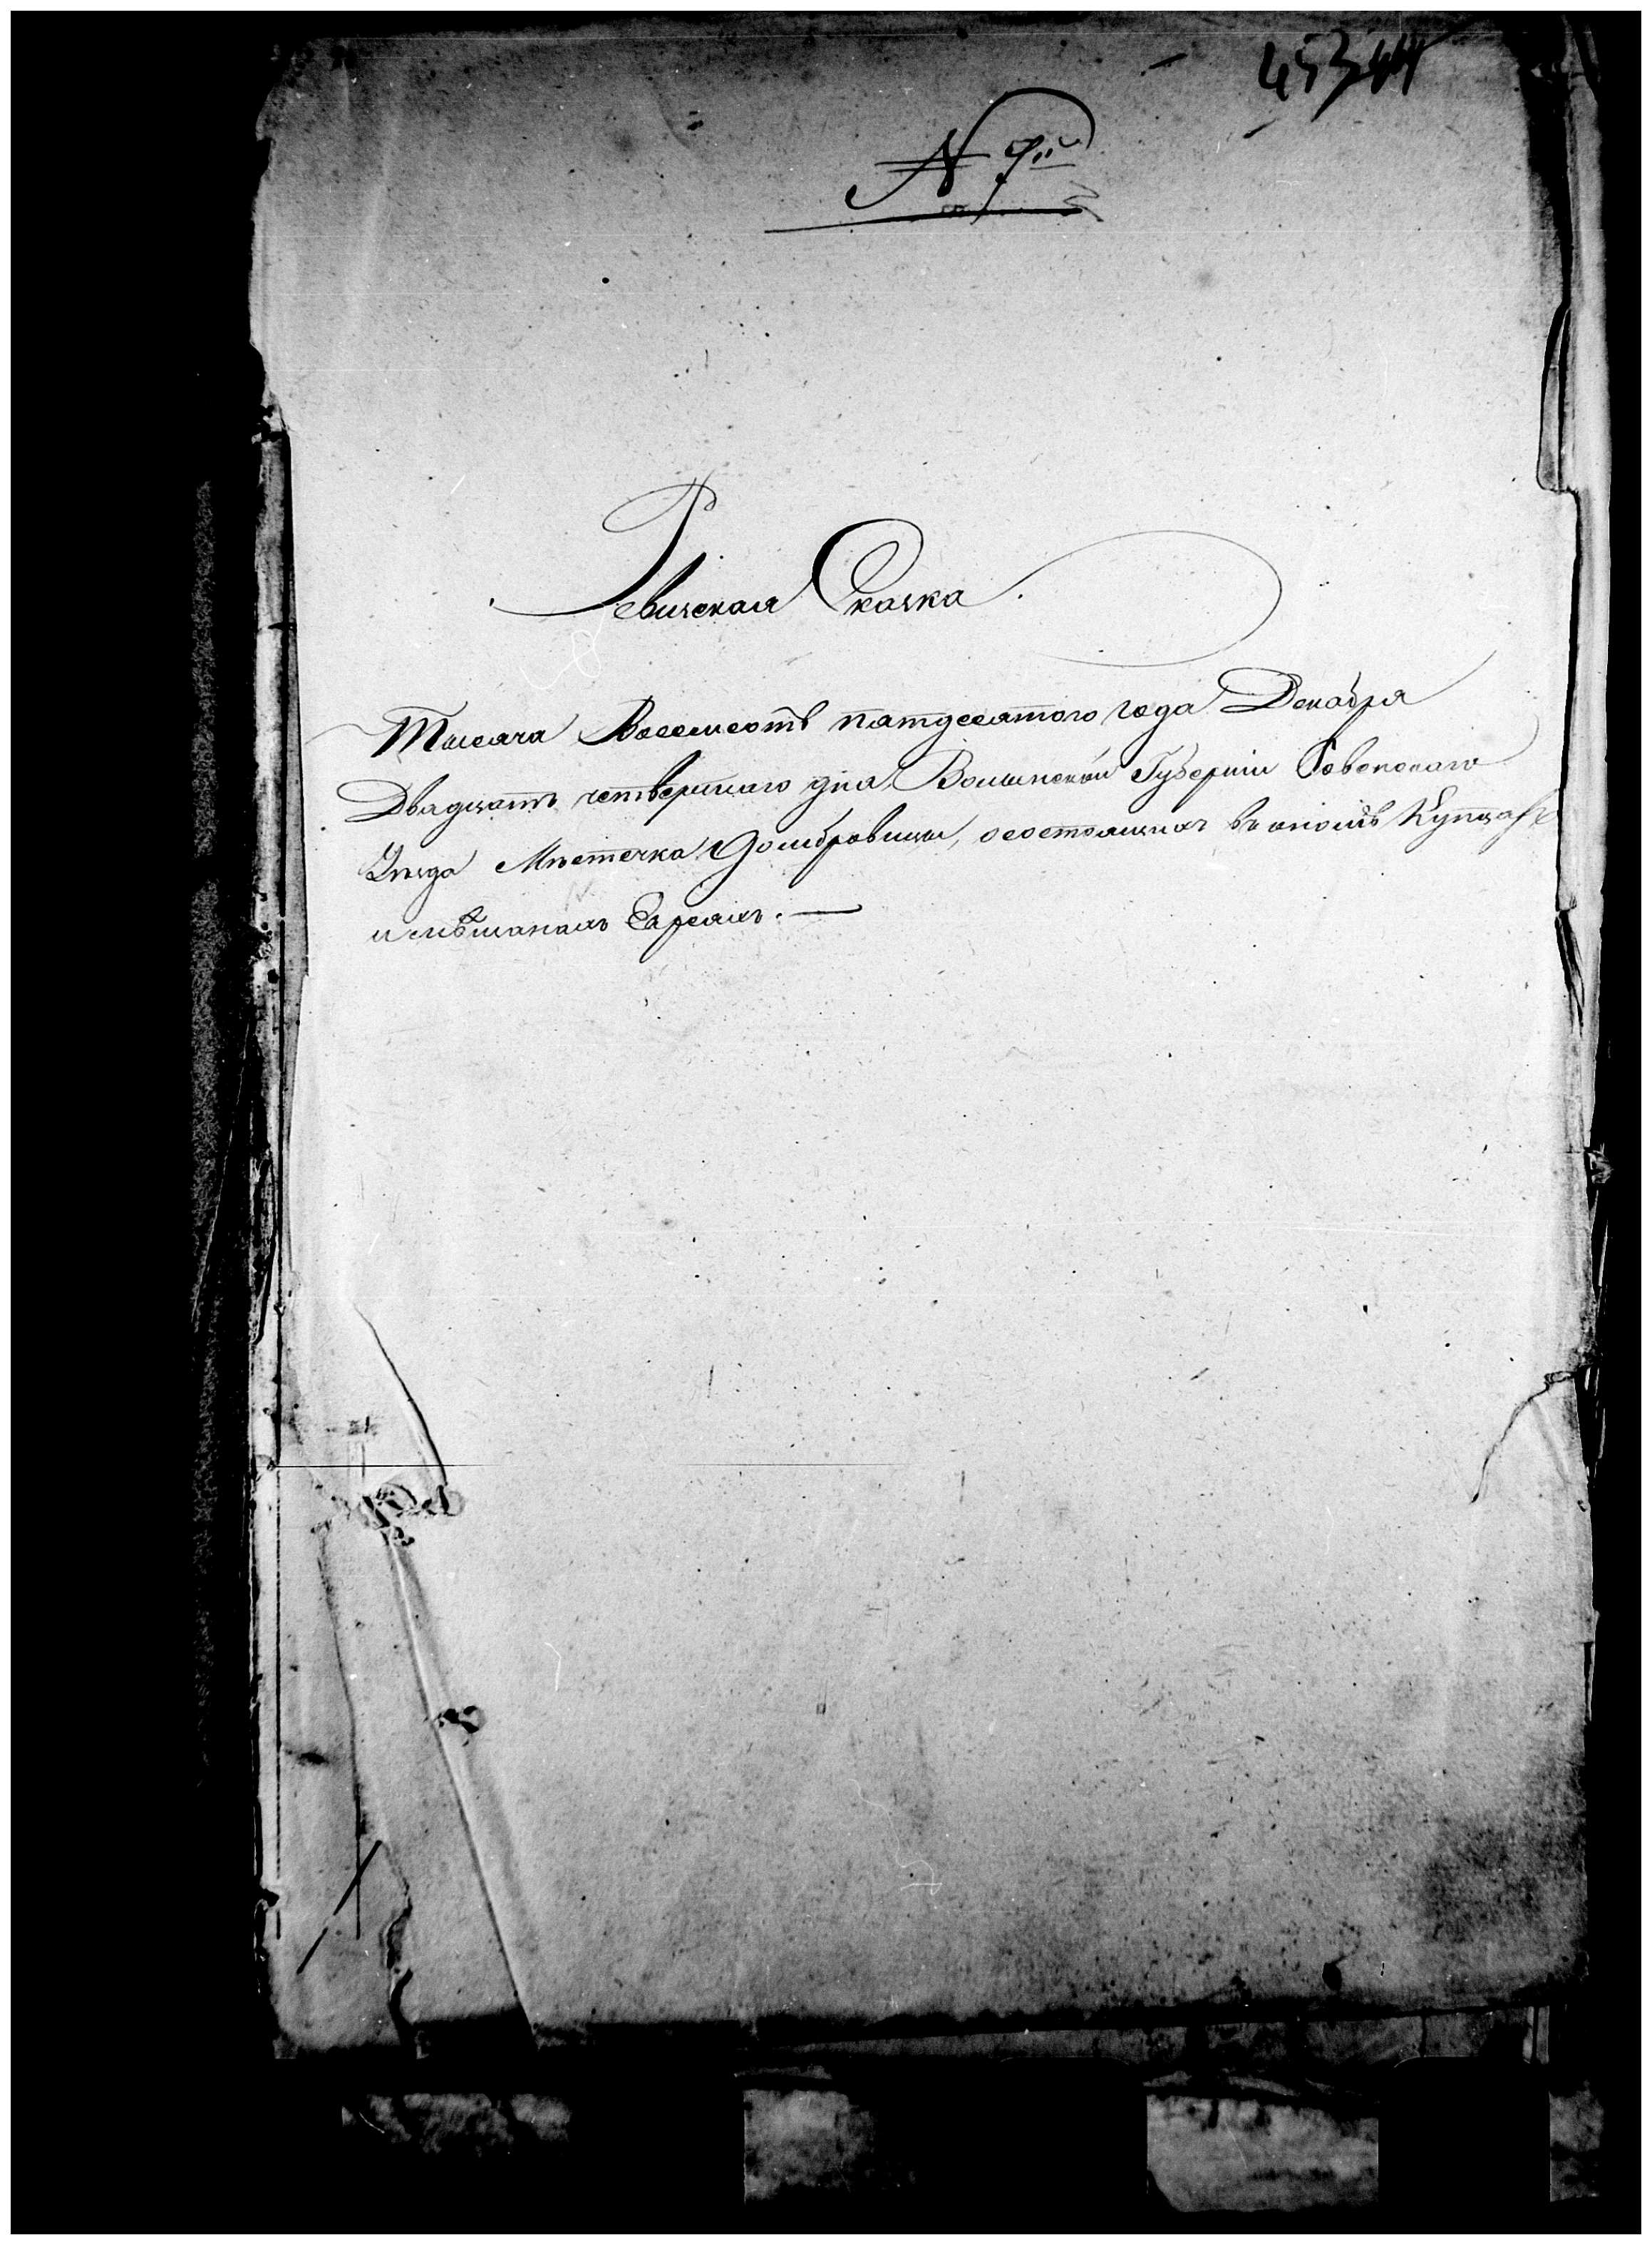 № 9й
Ревизская Сказка.
Тысяча Восемсотъ пятдесятого года Декабря
Двадцать четвертаго дня Волынской Губернiи Ровенскаго
Уѣзда Мѣстечка Домбровицы, о состоящихъ въ ономъ Купцахъ
и мѣщанахъ Евреяхъ. —